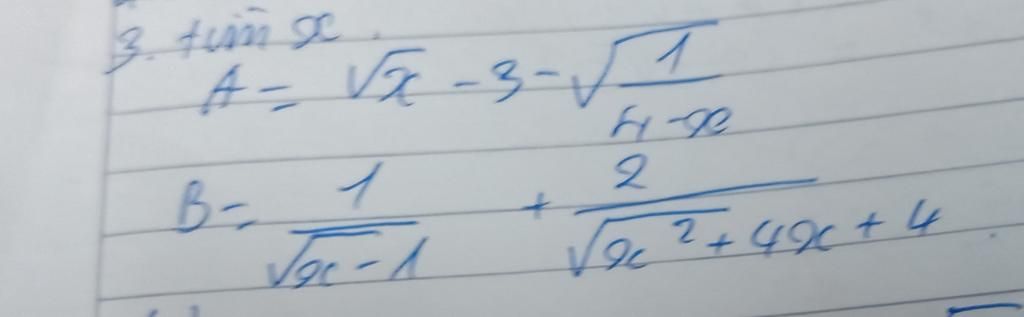 3. tìm x.
A = √x - 3 - √(1/(4-x))
B = 1/(√x-1) + 2/(√x²+4x+4)